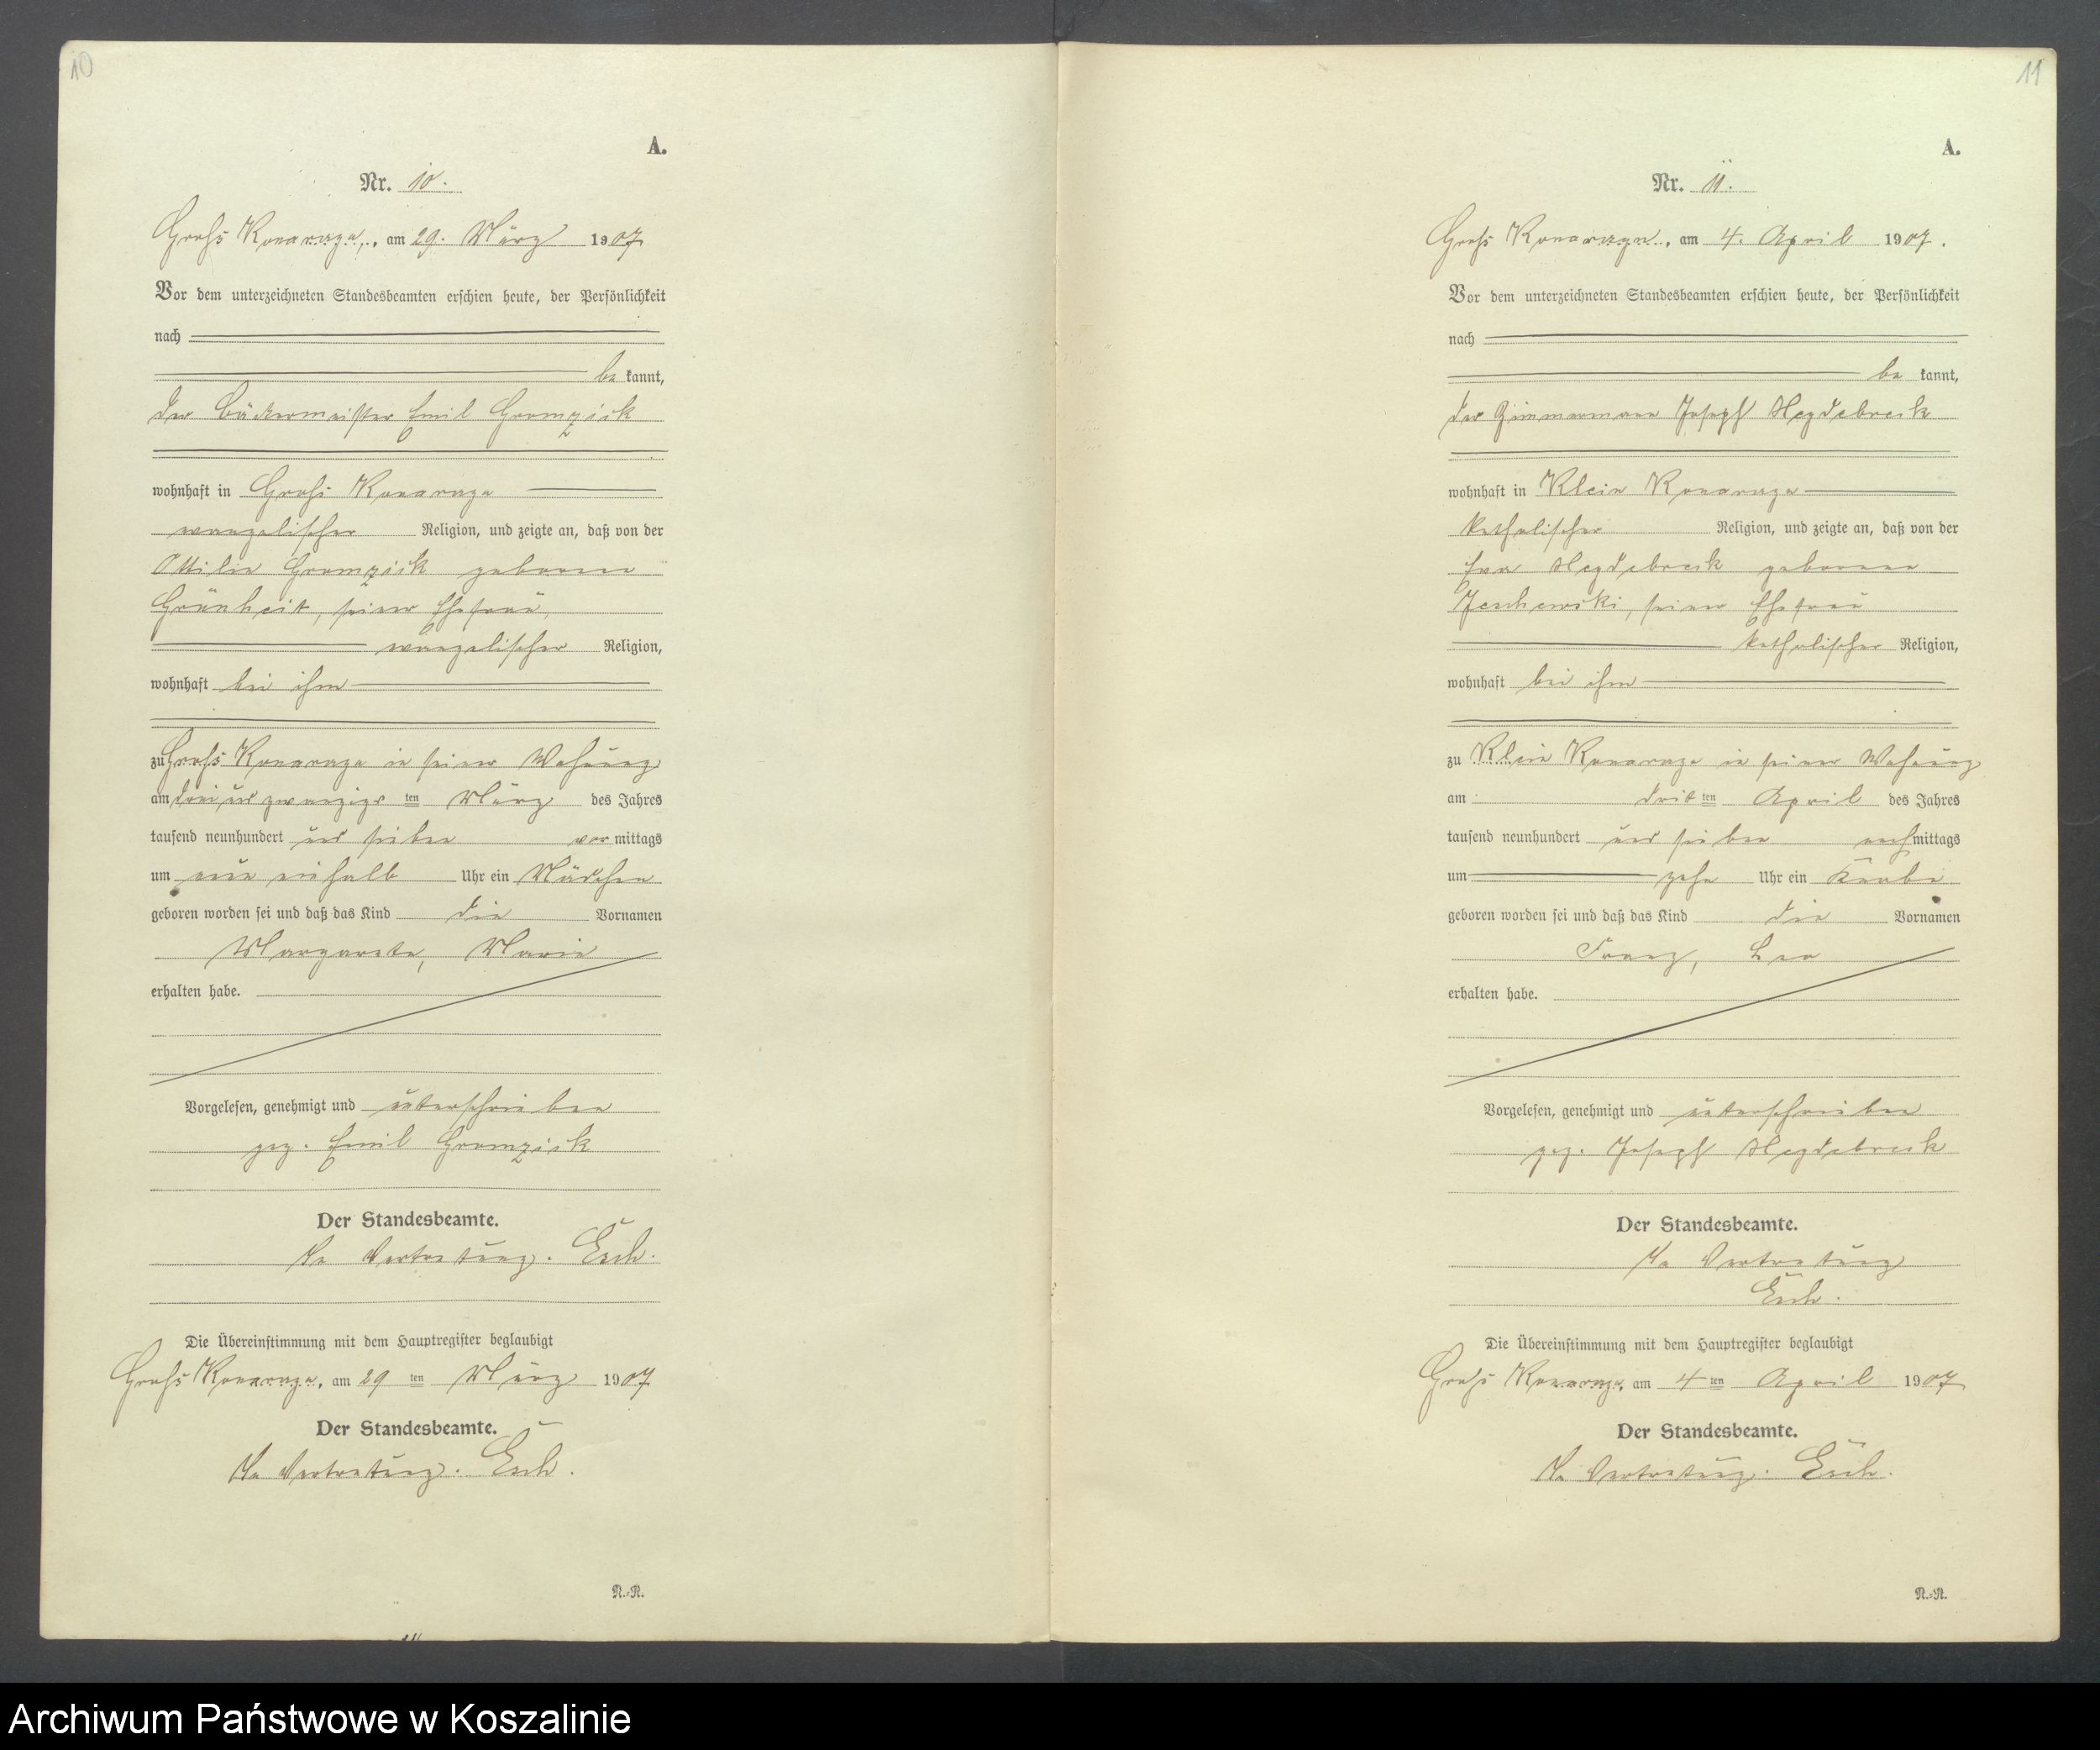 10
A.
Nr. 10.
Groß Konarzyn, am 29. März 1907
Vor dem unterzeichneten Standesbeamten erschien heute, der Persönlichkeit
nach
be kannt,
der Bäckermeister Emil Gromzick
wohnhaft in Groß Konarzyn
evangelischer Religion, und zeigte an, daß von der
Ottilie Gromzick geborene
Grünheit, seiner Ehefrau,
evangelischer Religion,
wohnhaft bei ihm
zu Groß Konarzyn in seiner Wohnung
am drei und zwanzigsten März des Jahres
tausend neunhundert und sieben vor mittags
um neun einhalb Uhr ein Mädchen
geboren worden sei und daß das Kind die Vornamen
Margarete, Marie
erhalten habe.
Vorgelesen, genehmigt und unterschrieben
gez. Emil Gromzick
Der Standesbeamte.
In Vertretung.
Die Übereinstimmung mit dem Hauptregister beglaubigt
Groß Konarzyn, am 29 ten März 1907
Der Standesbeamte.
In Vertretung.
N.=N.
11
A.
Nr. 11.
Groß Konarzyn, am 4. April 1907.
Vor dem unterzeichneten Standesbeamten erschien heute, der Persönlichkeit
nach
be kannt,
der Zimmermann Joseph Heydebreck
wohnhaft in Klein Konarzyn
katholischer Religion, und zeigte an, daß von der
Eva Heydebreck geborene
seiner Ehefrau
katholischer Religion,
wohnhaft bei ihm
zu Klein Konarzyn in seiner Wohnung
am dritten April des Jahres
tausend neunhundert und sieben nachmittags
um zehn Uhr ein Knabe
geboren worden sei und daß das Kind die Vornamen
Franz, Leo
erhalten habe.
Vorgelesen, genehmigt und unterschrieben
gez. Joseph Heydebreck
Der Standesbeamte.
In Vertretung
Die Übereinstimmung mit dem Hauptregister beglaubigt
Groß Konarzyn, am 4 ten April 1907
Der Standesbeamte.
In Vertretung.
N.=N.
Archiwum Państwowe w Koszalinie